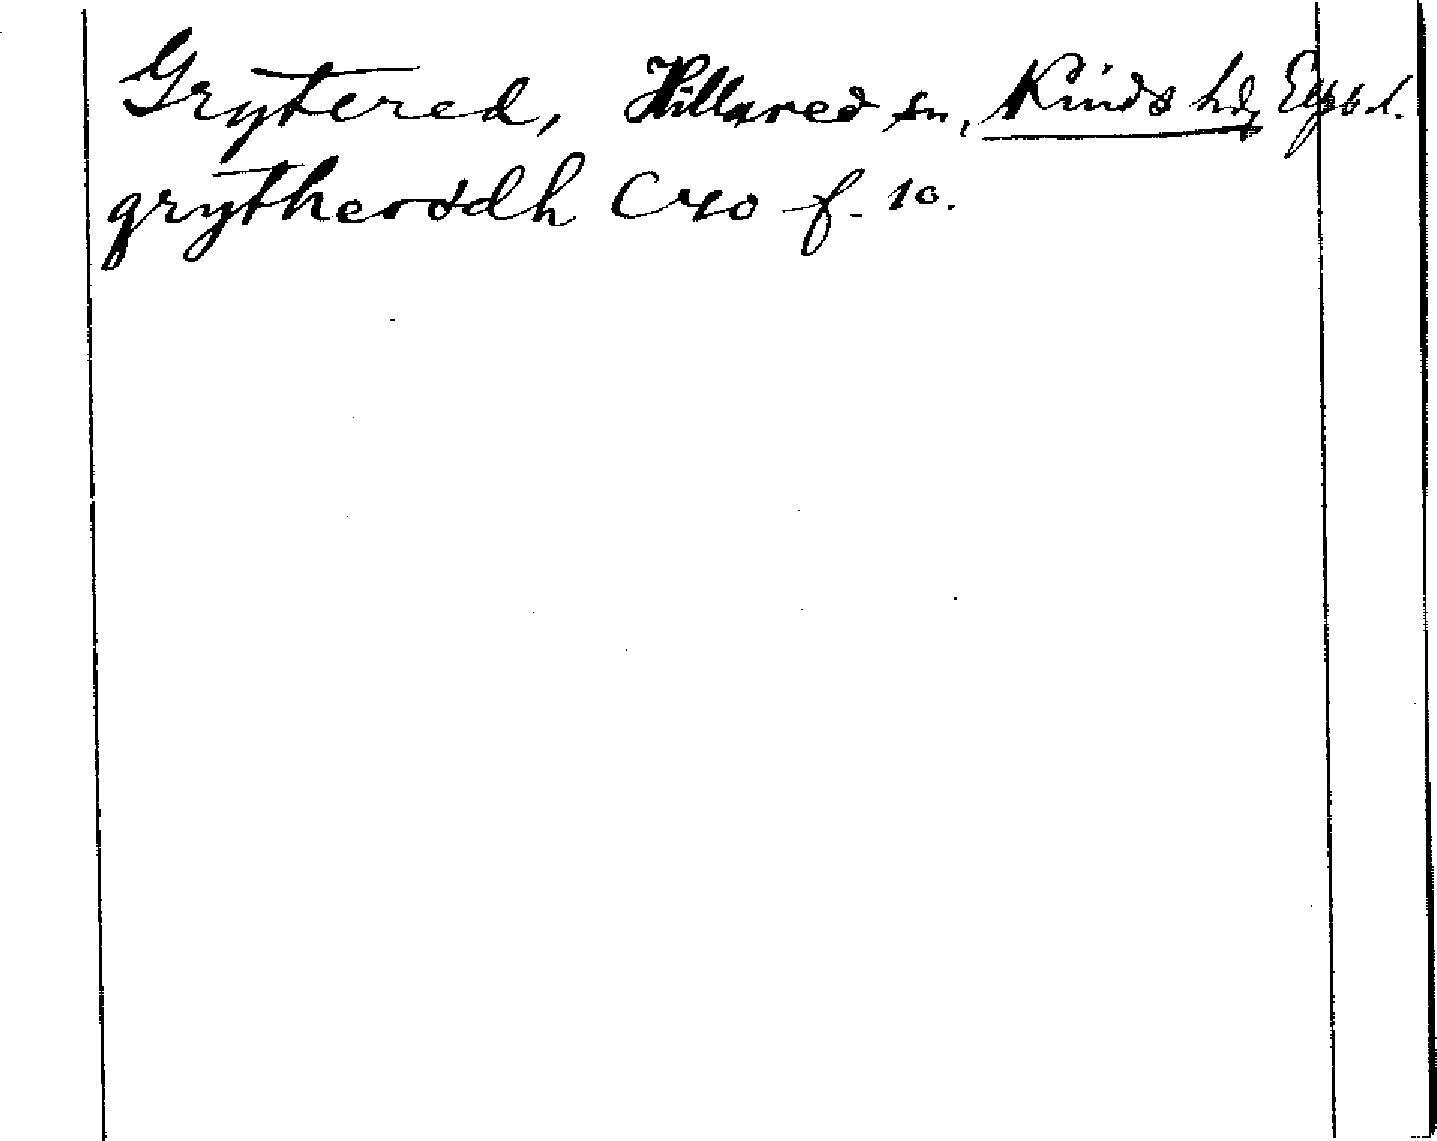 Grytered, Hillared sn, Kinds hd, Elfsb. l.
grytherødh C40 f. 10.